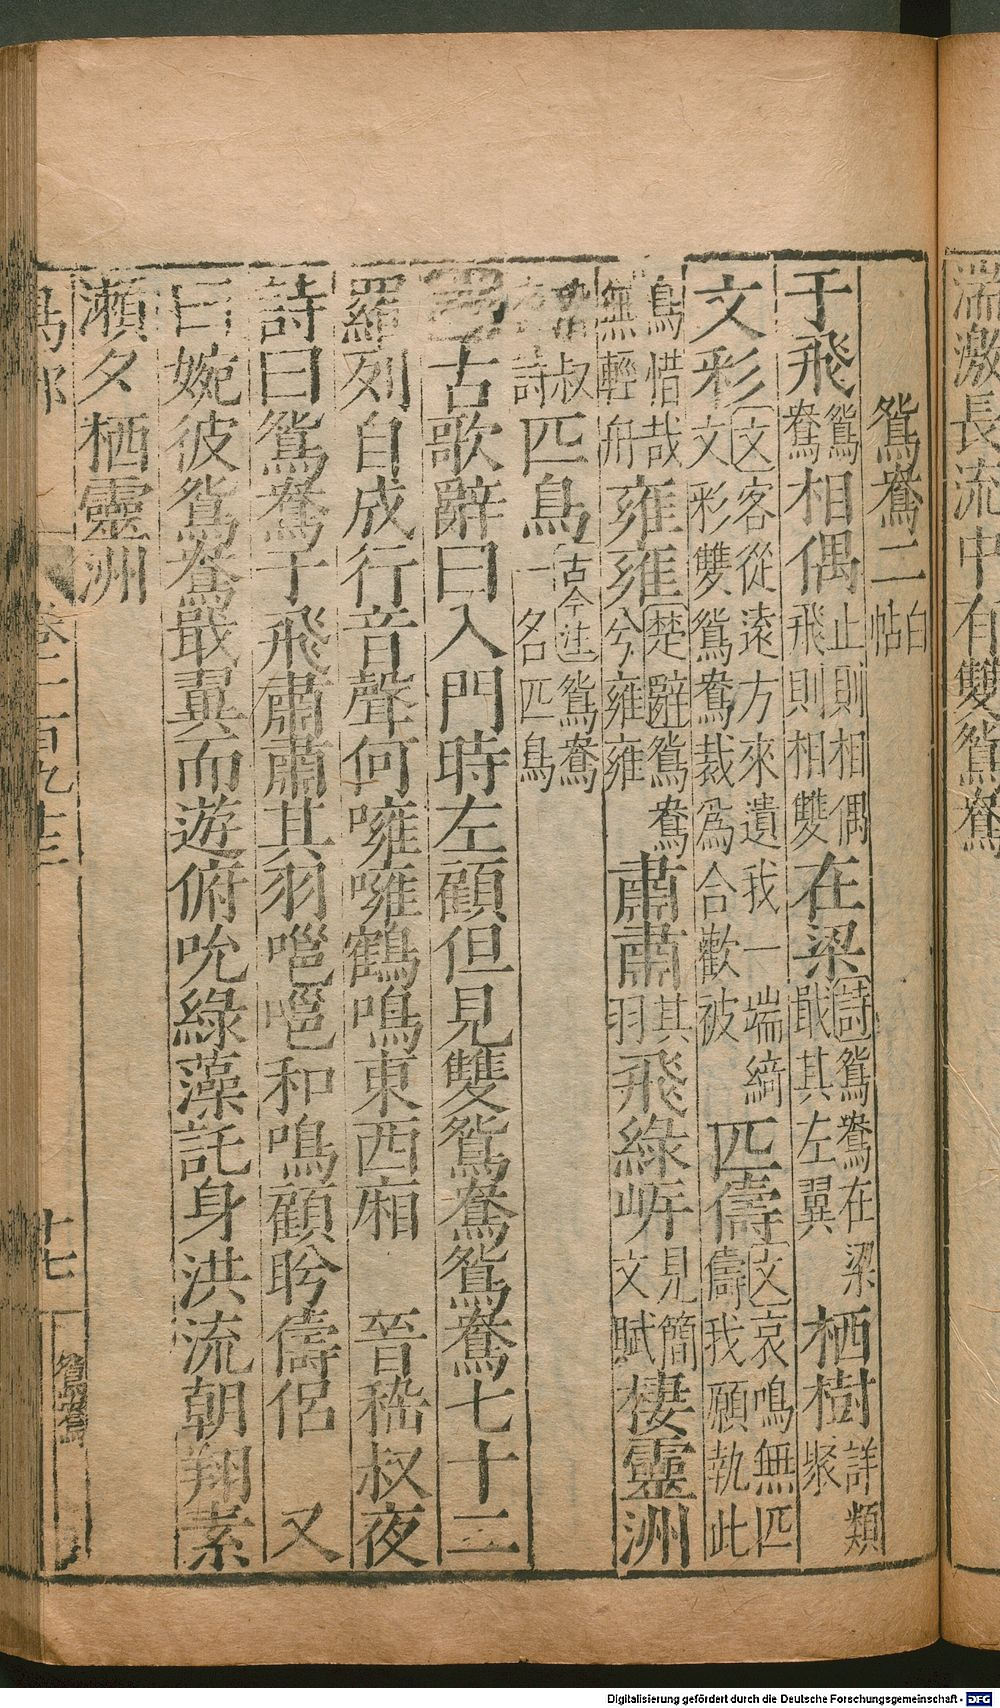 濡激長流中有雙鴛鴦
鴛鴦二白帖
于飛鴛鴦相偶止則相偶飛則相雙在梁詩鴛鴦在梁戢其左翼栖樹詳類聚
文彩文客從遠方來遺我一端綺文彩雙鴛鴦裁為合歡被匹儔文哀鳴無匹儔我願執此
鳥惜哉無輕舟雍雍楚辭鴛鴦兮雍雍肅肅其羽飛綠㟁見簡文賦棲靈洲
叔詩匹鳥古今注鴛鴦一名匹鳥
古歌辭曰入門時左顧但見雙鴛鴦鴛鴦七十二
羅列自成行音聲何噰噰鶴鳴東西廂 晉嵇叔夜
詩曰鴛鴦于飛肅肅其羽嗈嗈和鳴顧盻儔侶 又
曰婉彼鴛鴦戢翼而遊俯吮綠藻託身洪流朝翔素
瀨夕栖靈洲
鳥部 卷二百九十三 十七 鴛鴦
Digitalisierung gefördert durch die Deutsche Forschungsgemeinschaft - DFG